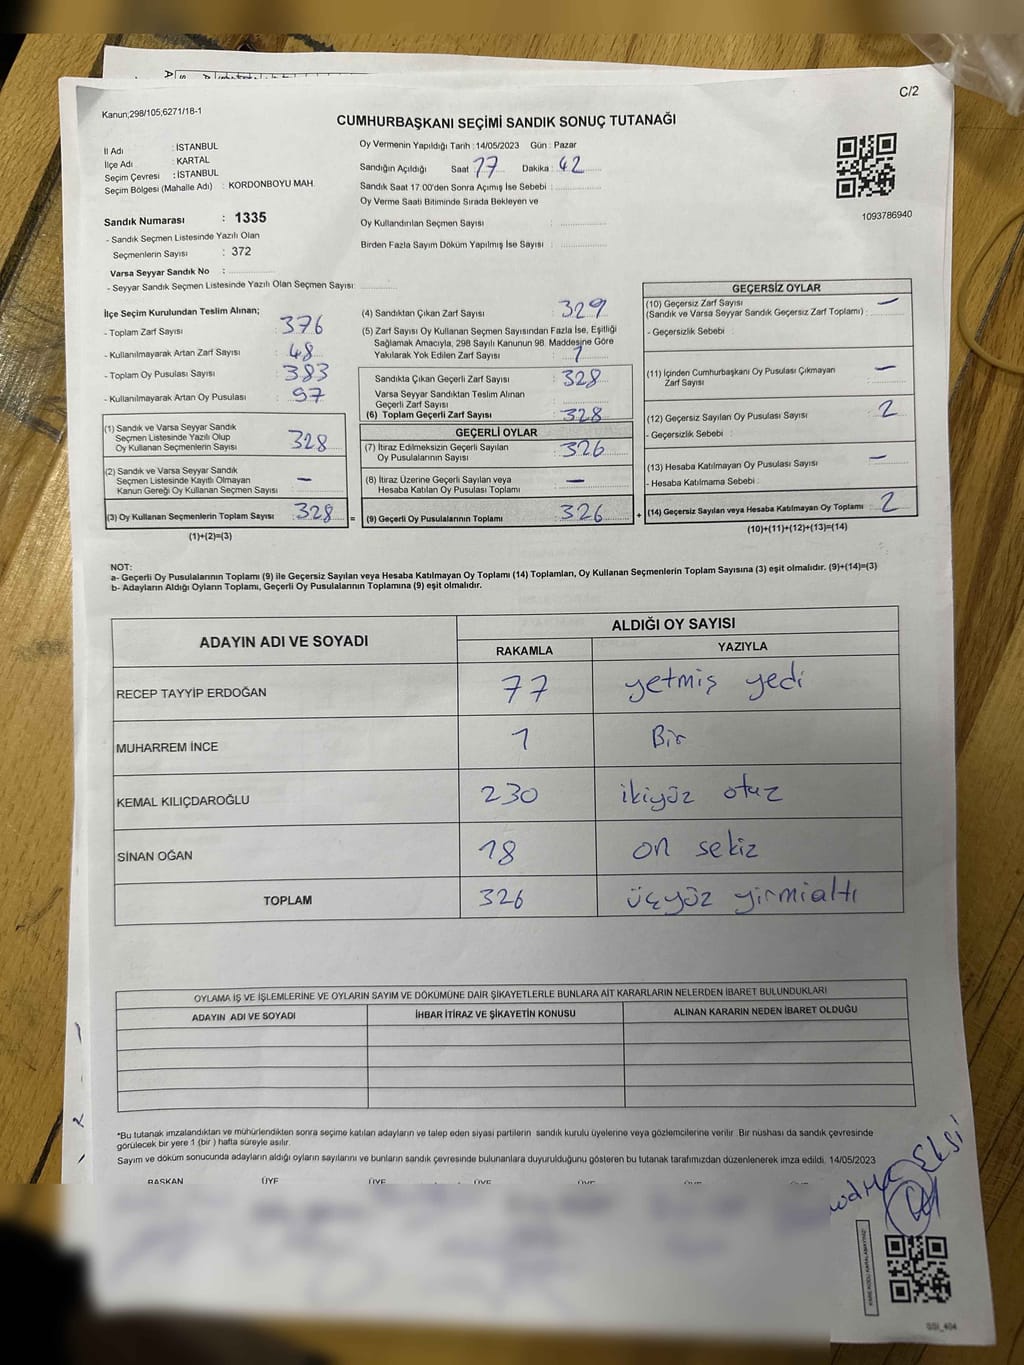 C/2
Kanun;298/105;6271/18-1
CUMHURBAŞKANI SEÇİMİ SANDIK SONUÇ TUTANAĞI
İl Adı : İSTANBUL
İlçe Adı : KARTAL
Seçim Çevresi : İSTANBUL
Seçim Bölgesi (Mahalle Adı) : KORDONBOYU MAH.
Sandık Numarası : 1335
- Sandık Seçmen Listesinde Yazılı Olan
Seçmenlerin Sayısı : 372
Varsa Seyyar Sandık No :
- Seyyar Sandık Seçmen Listesinde Yazılı Olan Seçmen Sayısı:
Oy Vermenin Yapıldığı Tarih : 14/05/2023 Gün : Pazar
Sandığın Açıldığı Saat 17 Dakika : 42
Sandık Saat 17.00'den Sonra Açımış İse Sebebi :
Oy Verme Saati Bitiminde Sırada Bekleyen ve
Oy Kullandırılan Seçmen Sayısı :
Birden Fazla Sayım Döküm Yapılmış İse Sayısı :
1093786940
İlçe Seçim Kurulundan Teslim Alınan;
- Toplam Zarf Sayısı : 376
- Kullanılmayarak Artan Zarf Sayısı : 48
- Toplam Oy Pusulası Sayısı : 383
- Kullanılmayarak Artan Oy Pusulası : 97
(1) Sandık ve Varsa Seyyar Sandık
Seçmen Listesinde Yazılı Olup
Oy Kullanan Seçmenlerin Sayısı : 328
(2) Sandık ve Varsa Seyyar Sandık
Seçmen Listesinde Kayıtlı Olmayan
Kanun Gereği Oy Kullanan Seçmen Sayısı : —
(3) Oy Kullanan Seçmenlerin Toplam Sayısı : 328 =
(1)+(2)=(3)
(4) Sandıktan Çıkan Zarf Sayısı : 329
(5) Zarf Sayısı Oy Kullanan Seçmen Sayısından Fazla İse, Eşitliği
Sağlamak Amacıyla, 298 Sayılı Kanunun 98. Maddesine Göre
Yakılarak Yok Edilen Zarf Sayısı : 1
Sandıkta Çıkan Geçerli Zarf Sayısı : 328
Varsa Seyyar Sandıktan Teslim Alınan
Geçerli Zarf Sayısı :
(6) Toplam Geçerli Zarf Sayısı : 328
GEÇERLİ OYLAR
(7) İtiraz Edilmeksizin Geçerli Sayılan
Oy Pusulalarının Sayısı : 326
(8) İtiraz Üzerine Geçerli Sayılan veya
Hesaba Katılan Oy Pusulası Toplamı : —
(9) Geçerli Oy Pusulalarının Toplamı : 326 +
GEÇERSİZ OYLAR
(10) Geçersiz Zarf Sayısı —
(Sandık ve Varsa Seyyar Sandık Geçersiz Zarf Toplamı) :
- Geçersizlik Sebebi :
(11) İçinden Cumhurbaşkanı Oy Pusulası Çıkmayan —
Zarf Sayısı :
(12) Geçersiz Sayılan Oy Pusulası Sayısı : 2
- Geçersizlik Sebebi :
(13) Hesaba Katılmayan Oy Pusulası Sayısı : —
- Hesaba Katılmama Sebebi :
(14) Geçersiz Sayılan veya Hesaba Katılmayan Oy Toplamı : 2
(10)+(11)+(12)+(13)=(14)
NOT:
a- Geçerli Oy Pusulalarının Toplamı (9) ile Geçersiz Sayılan veya Hesaba Katılmayan Oy Toplamı (14) Toplamları, Oy Kullanan Seçmenlerin Toplam Sayısına (3) eşit olmalıdır. (9)+(14)=(3)
b- Adayların Aldığı Oyların Toplamı, Geçerli Oy Pusulalarının Toplamına (9) eşit olmalıdır.
ADAYIN ADI VE SOYADI ALDIĞI OY SAYISI
RAKAMLA YAZIYLA
RECEP TAYYİP ERDOĞAN 77 yetmiş yedi
MUHARREM İNCE 1 Bir
KEMAL KILIÇDAROĞLU 230 ikiyüz otuz
SİNAN OĞAN 18 on sekiz
TOPLAM 326 üçyüz yirmialtı
OYLAMA İŞ VE İŞLEMLERİNE VE OYLARIN SAYIM VE DÖKÜMÜNE DAİR ŞİKAYETLERLE BUNLARA AİT KARARLARIN NELERDEN İBARET BULUNDUKLARI
ADAYIN ADI VE SOYADI İHBAR İTİRAZ VE ŞİKAYETİN KONUSU ALINAN KARARIN NEDEN İBARET OLDUĞU
*Bu tutanak imzalandıktan ve mühürlendikten sonra seçime katılan adayların ve talep eden siyasi partilerin sandık kurulu üyelerine veya gözlemcilerine verilir. Bir nüshası da sandık çevresinde
görülecek bir yere 1 (bir ) hafta süreyle asılır.
Sayım ve döküm sonucunda adayların aldığı oyların sayılarını ve bunların sandık çevresinde bulunanlara duyurulduğunu gösteren bu tutanak tarafımızdan düzenlenerek imza edildi. 14/05/2023
BAŞKAN ÜYE ÜYE ÜYE ÜYE ÜYE
SSI_404